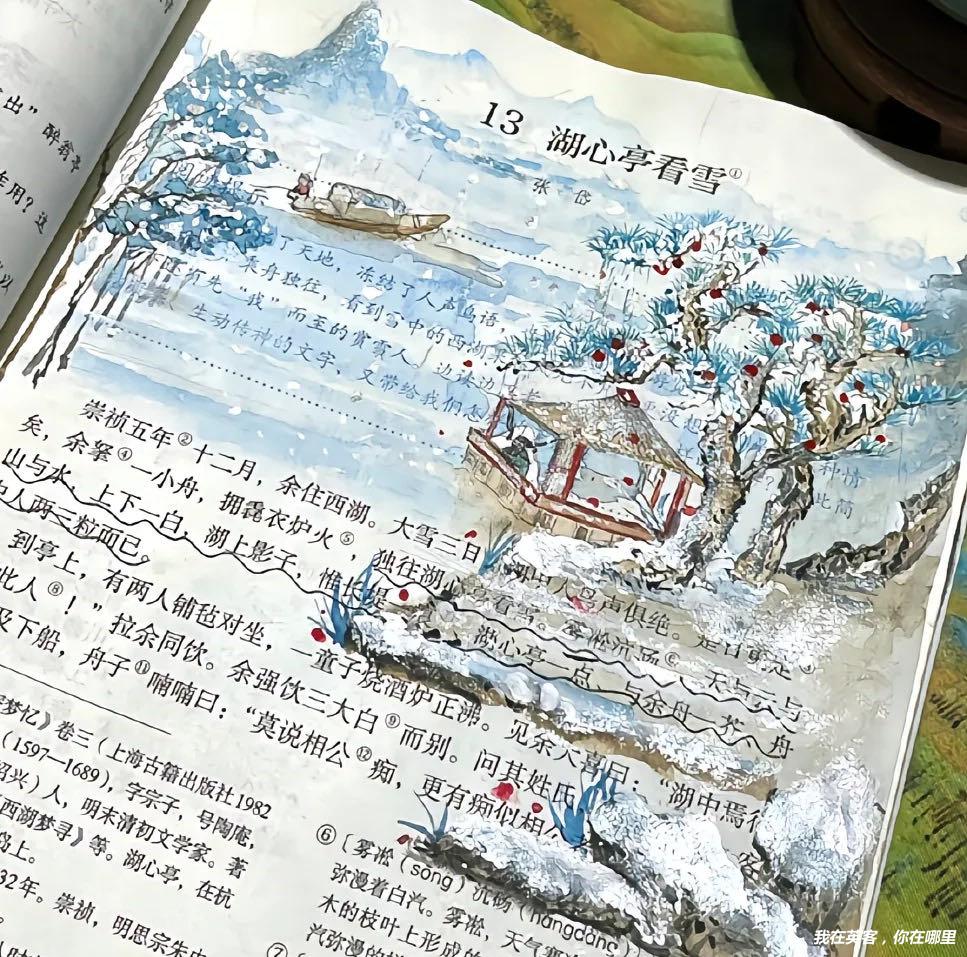 出”醉翁亭
作用？这
13 湖心亭看雪①
张岱
示
了天地，冻结了人声鸟语，
舟独往，看到雪中的西湖
先“我”而至的赏雪人
生动传神的文字，又带给我们怎
种情
此简
崇祯五年②十二月，余住西湖。大雪三日，湖中人鸟声俱绝。是日更定
矣，余拏④一小舟，拥毳衣炉火⑤，独往湖心亭看雪。雾凇沆砀⑥，天与云与
山与水，上下一白，湖上影子，惟长堤一 湖心亭一点、与余舟一芥、舟
中人两三粒而已。
到亭上，有两人铺毡对坐，一童子烧酒炉正沸。见余大喜曰：“湖中焉得
此人⑧！”拉余同饮。余强饮三大白⑨而别。问其姓氏 客
及下船，舟子⑪喃喃曰：“莫说相公⑫痴，更有痴似相公
梦忆》卷三（上海古籍出版社1982
（1597—1689），字宗子，号陶庵，
绍兴）人，明末清初文学家。著
西湖梦寻》等。湖心亭，在杭
岛上。
32年。崇祯，明思宗朱由
⑥〔雾凇（sōng）沆砀（hàngdàng
弥漫着白汽。雾凇，天气寒
木的枝叶上形成的
汽弥漫的样
⑦
我在英客，你在哪里